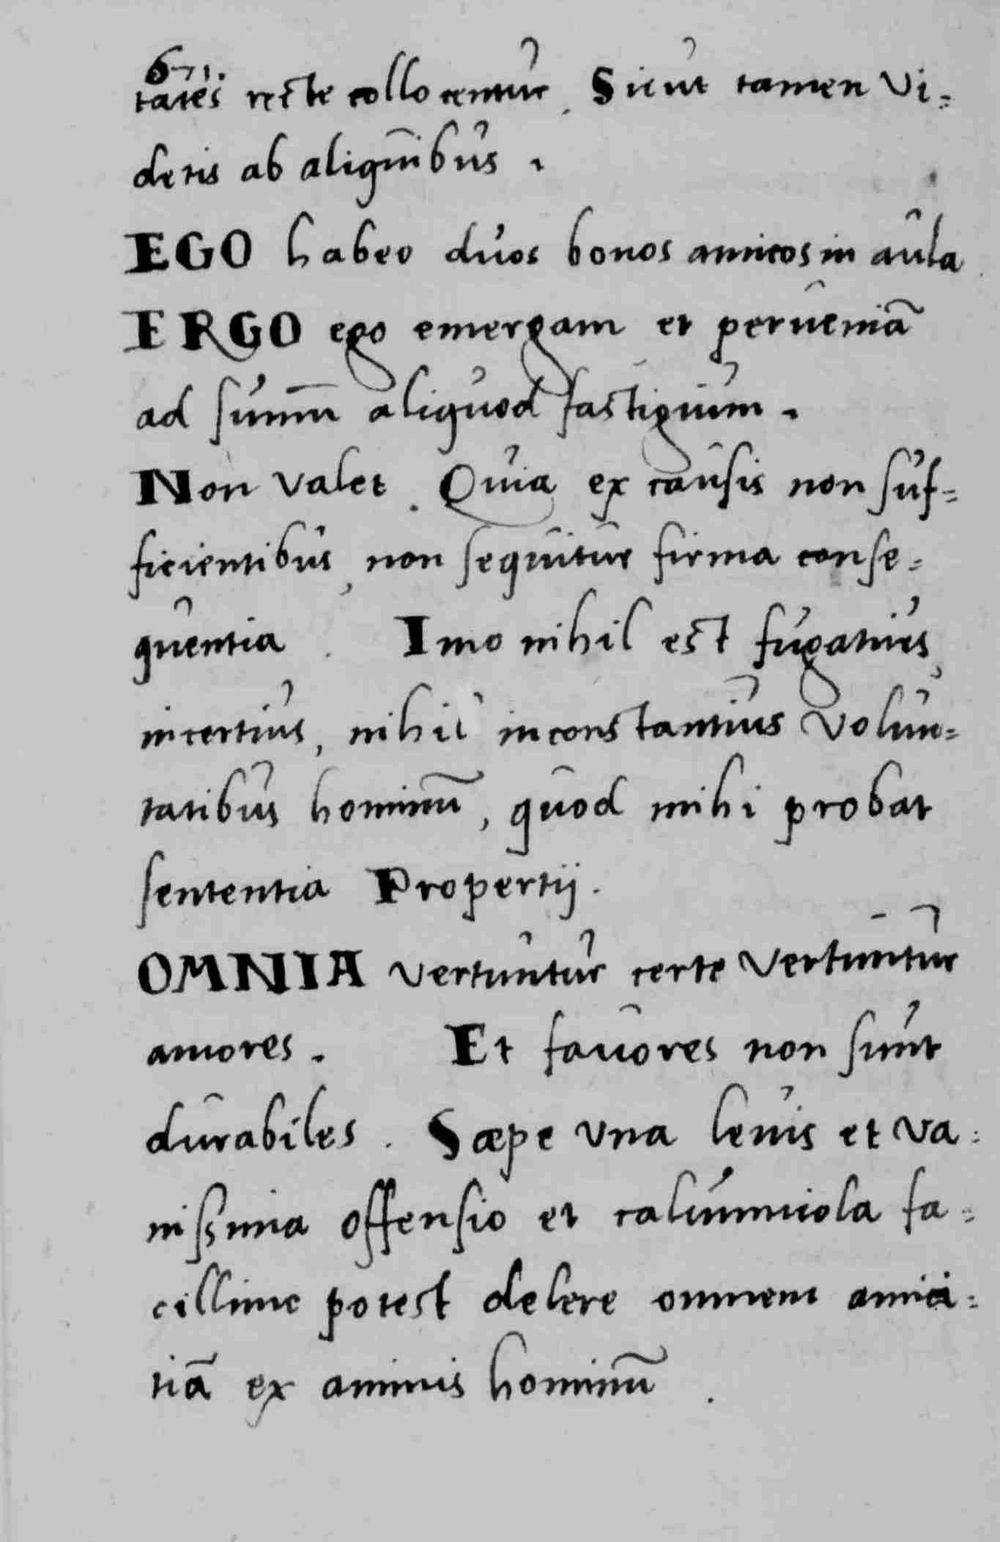 671.
tates recte collocentur. Sicut tamen vi=
detis ab aliquibus.
EGO habeo duos bonos amicos in aula
ERGO ego emergam et perueniā
ad summū aliquod fastigium.
Non valet. Quia ex causis non suf=
ficientibus, non sequitur firma conse=
quentia. Imo nihil est fugatius,
incertius, nihil inconstantius volun=
tatibus hominū, quod mihi probat
sententia Propertij.
OMNIA vertuntur certe vertuntur
amores. Et fauores non sunt
durabiles. Sæpe vna leuis et va=
nissima offensio et calumniola fa=
cillime potest delere omnem amici=
tiā ex animis hominū.